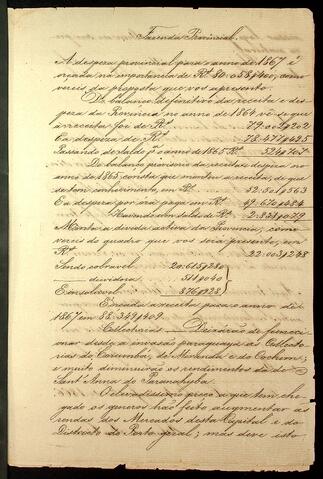 Fazenda Provincial.
A despeza provincial para o anno de 1867 é
orçada na importancia de Rs 80:058$400, como
vereis da proposta que vos apresento.
Do balanço definitivo da receita e des
peza da Provincia no anno de 1864 vê-se que
a receita foi de Rs 79:001$202
E a despeza no Rs 78:477$435
Passando de saldo pa o anno de 1865 Rs 524$767
Do balanço provisorio da receita e despeza no
anno de 1865 consta que montou a receita, de que
se tem conhecimento, em Rs 52:501$563
E a despeza por ora paga em Rs 49:670$484
Havendo um saldo de Rs 2:831$079
Monta a divida activa da Provincia, como
vereis do quadro que vos será presente, em
Rs 22:003$248
Sendo cobravel 20:615$280
duvidosa 511$040
E incobravel 876$928
É orçada a receita para o anno de
1867 em 88:349$409.
Collectorias Deixarão de funccio
nar desde a invasão paraguaya as Collecto
rias de Corumbá, de Miranda e do Coxim;
e muito diminuirão os rendimentos da de
Sant'Anna do Paranahyba.
O elevadissimo preço a que tem che
gado os generos hão feito augmentar as
rendas dos Mercados desta Capital e do
Districto do Porto geral; mas deve isto